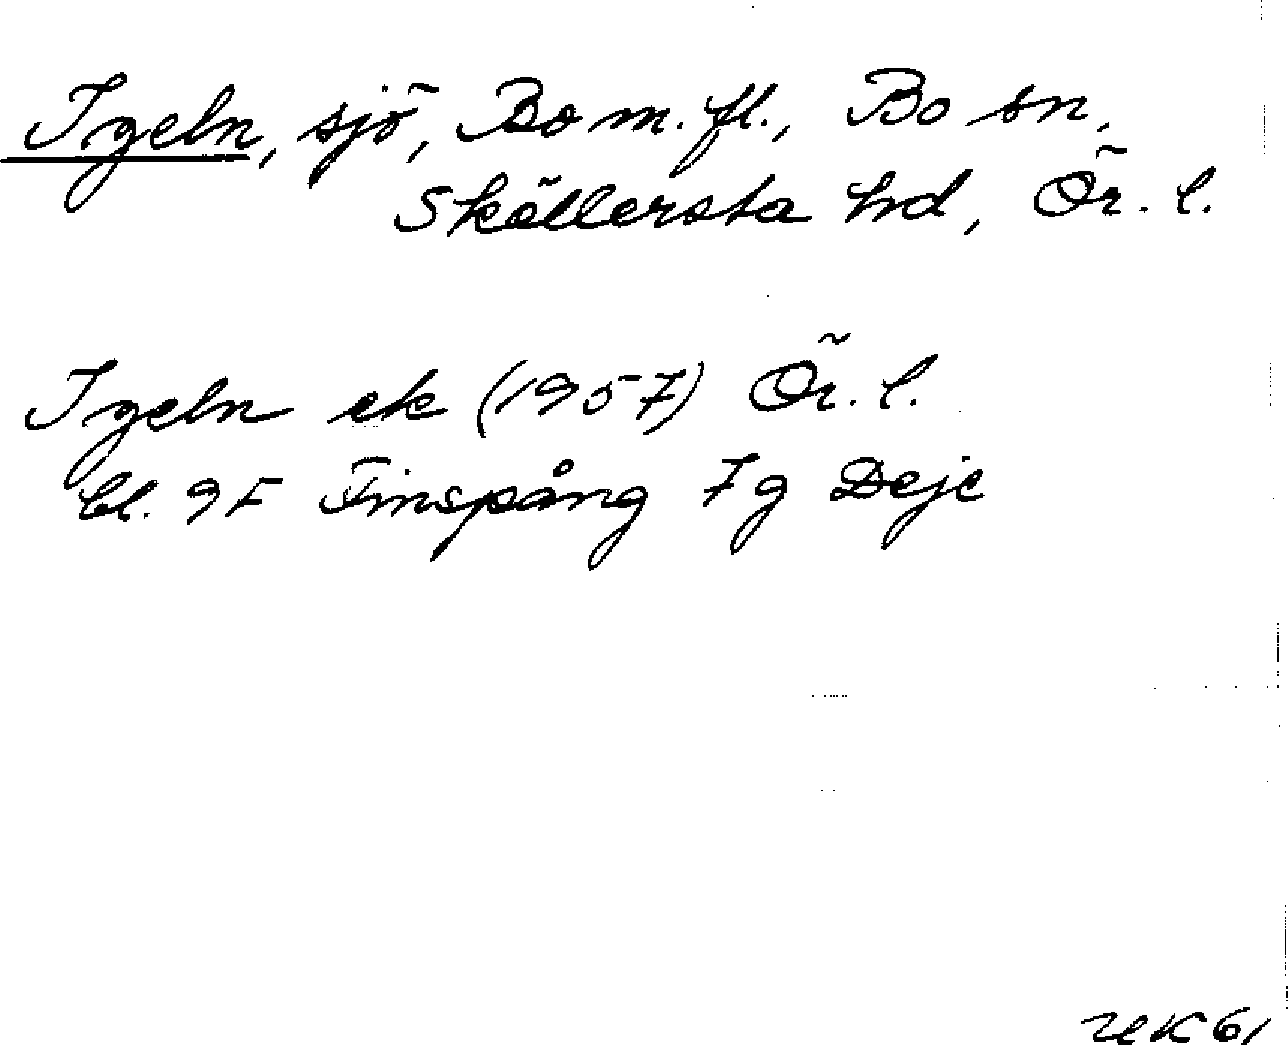 Igeln, sjö, Bo m. fl., Bo sn,
Sköllersta hd, Ör. l.
Igeln ek (1957) Ör. l.
bl. 9F Finspång 7g Deje
UK 61